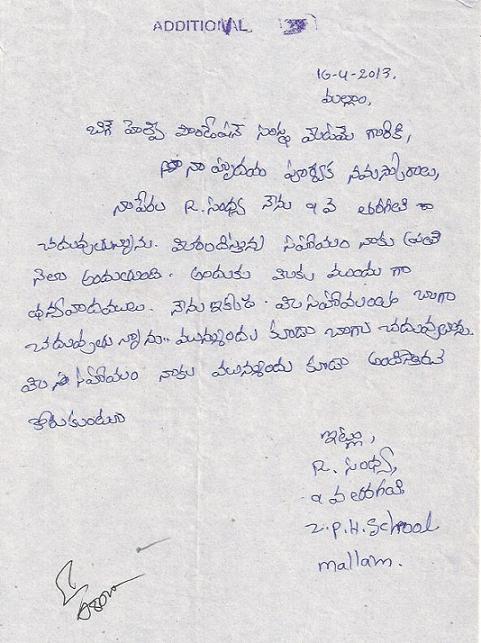 ADDITIONAL
16-4-2013.
మల్లాం,
బిగ్ హెల్ప్ ఫౌండేషన్ సంస్థ మేడమ్ గారికి,
నా హృదయ పూర్వక నమస్కారాలు,
నా పేరు R. సంధ్య నేను 9 వ తరగతి
చదువుతున్నాను. మీరందిస్తున్న సహాయం నాకు ప్రతి
నెలా అందుతుంది. అందుకు మీకు ముందు గా
ధన్యవాదములు. నేను ఇక్కడ మీ సహాయంతో బాగా
చదువుతు న్నాను. మున్ముందు కూడా బాగా చదువుతాను.
మీ సహాయం నాకు మున్ముందు కూడా అందిస్తారని
కోరుకుంటూ
ఇట్లు,
R. సంధ్య,
9 వ తరగతి
Z.P.H. School
mallam.